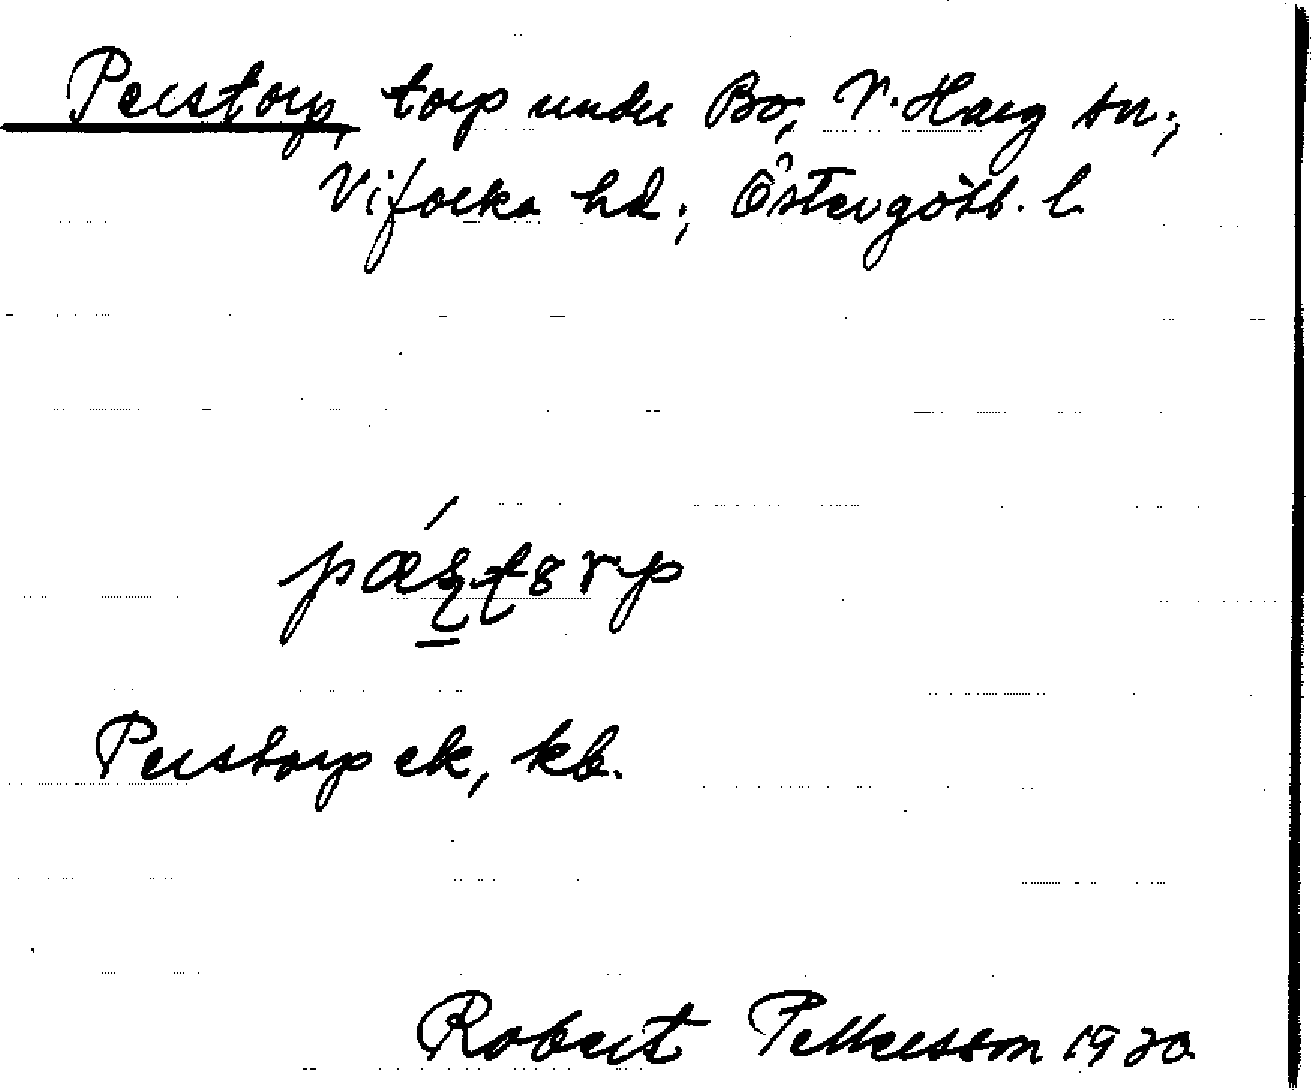 Perstorp, torp under Bo, V. Harg sn.;
Vifolka hd; Östergötl. l.
pǽʂʈ8rp
Perstorp ek, kb.
Robert Pettersson 1920